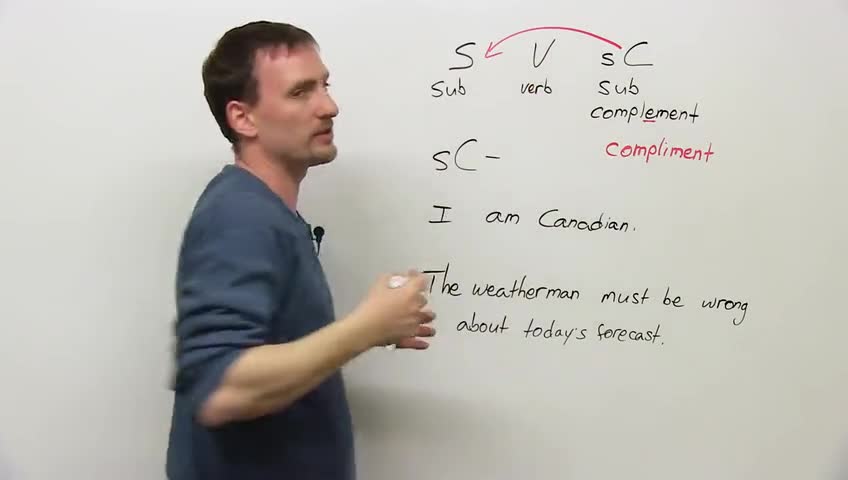 S V sC
sub verb sub
complement
compliment
sC –
I am Canadian.
The weatherman must be wrong
about today's forecast.